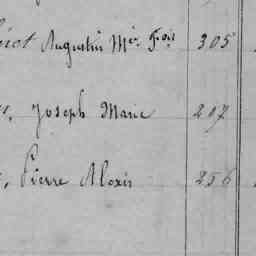 Augustin Mie Fois 305
Joseph Marie 207
Pierre Alexis 256